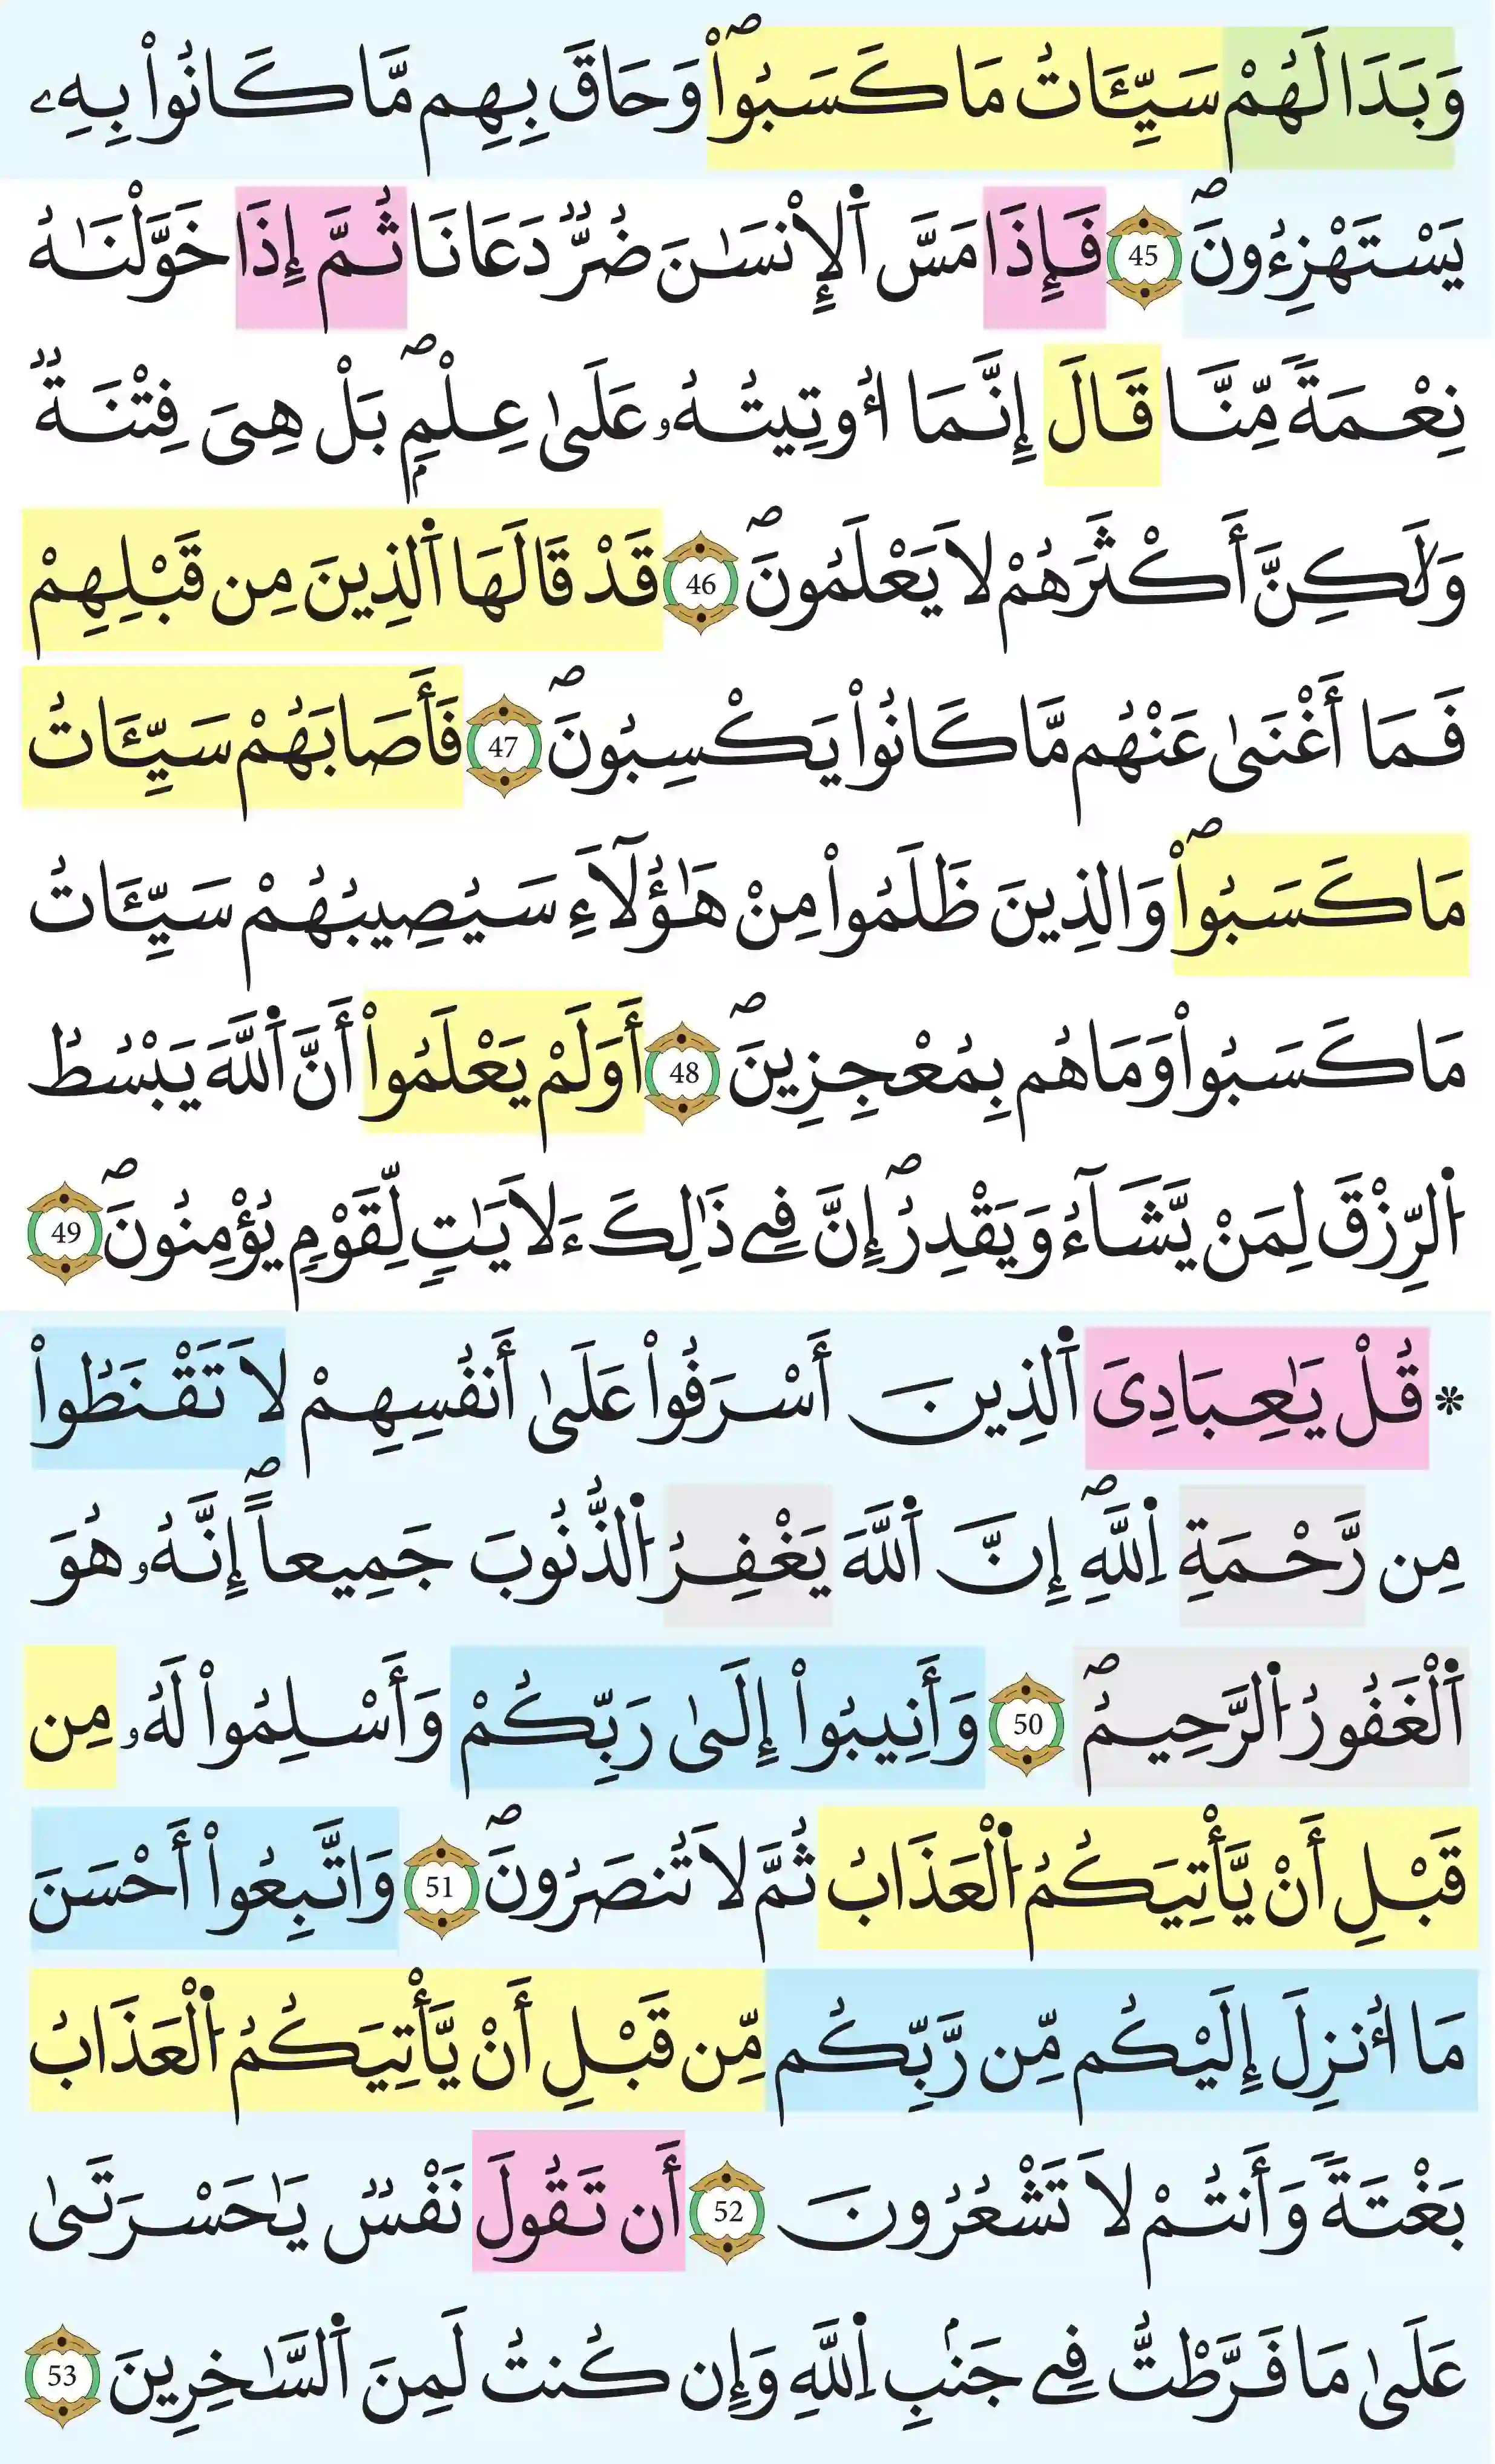 وَبَدَا لَهُمْ سَيِّـَٔاتُ مَا كَسَبُواْۖ وَحَاقَ بِهِم مَّا كَانُواْ بِهِۦ
يَسْتَهْزِءُونَۖ 45 فَإِذَا مَسَّ ٱلْإِنْسَٰنَ ضُرّٞ دَعَانَا ثُمَّ إِذَا خَوَّلْنَٰهُ
نِعْمَةٗ مِّنَّا قَالَ إِنَّمَا أُوتِيتُهُۥ عَلَىٰ عِلْمِۢۖ بَلْ هِىَ فِتْنَةٞ
وَلَٰكِنَّ أَكْثَرَهُمْ لَا يَعْلَمُونَۖ 46 قَدْ قَالَهَا ٱلذِينَ مِن قَبْلِهِمْ
فَمَا أَغْنَىٰ عَنْهُم مَّا كَانُواْ يَكْسِبُونَۖ 47 فَأَصَابَهُمْ سَيِّـَٔاتُ
مَا كَسَبُواْۖ وَالذِينَ ظَلَمُواْ مِنْ هَٰؤُلَآءِ سَيُصِيبُهُمْ سَيِّـَٔاتُ
مَا كَسَبُواْ وَمَا هُم بِمُعْجِزِينَۖ 48 أَوَلَمْ يَعْلَمُواْ أَنَّ ٱللَّهَ يَبْسُطُ
ٱلرِّزْقَ لِمَنْ يَّشَآءُ وَيَقْدِرُۖ إِنَّ فِے ذَٰلِكَ ءَلَايَٰتٖ لِّقَوْمٖ يُؤْمِنُونَۖ 49
* قُلْ يَٰعِبَادِىَ ٱلذِينَ أَسْرَفُواْ عَلَىٰ أَنفُسِهِمْ لَا تَقْنَطُواْ
مِن رَّحْمَةِ ٱللَّهِۖ إِنَّ ٱللَّهَ يَغْفِرُ ٱلذُّنُوبَ جَمِيعاًۖ إِنَّهُۥ هُوَ
ٱلْغَفُورُ ٱلرَّحِيمُۖ 50 وَأَنِيبُواْ إِلَىٰ رَبِّكُمْ وَأَسْلِمُواْ لَهُۥ مِن
قَبْلِ أَنْ يَّأْتِيَكُمُ ٱلْعَذَابُ ثُمَّ لَا تُنصَرُونَۖ 51 وَاتَّبِعُواْ أَحْسَنَ
مَا أُنزِلَ إِلَيْكُم مِّن رَّبِّكُم مِّن قَبْلِ أَنْ يَّأْتِيَكُمُ ٱلْعَذَابُ
بَغْتَةٗ وَأَنتُمْ لَا تَشْعُرُونَ 52 أَن تَقُولَ نَفْسٞ يَٰحَسْرَتَىٰ
عَلَىٰ مَا فَرَّطْتُّ فِے جَنۢبِ ٱللَّهِ وَإِن كُنتُ لَمِنَ ٱلسَّٰخِرِينَ 53